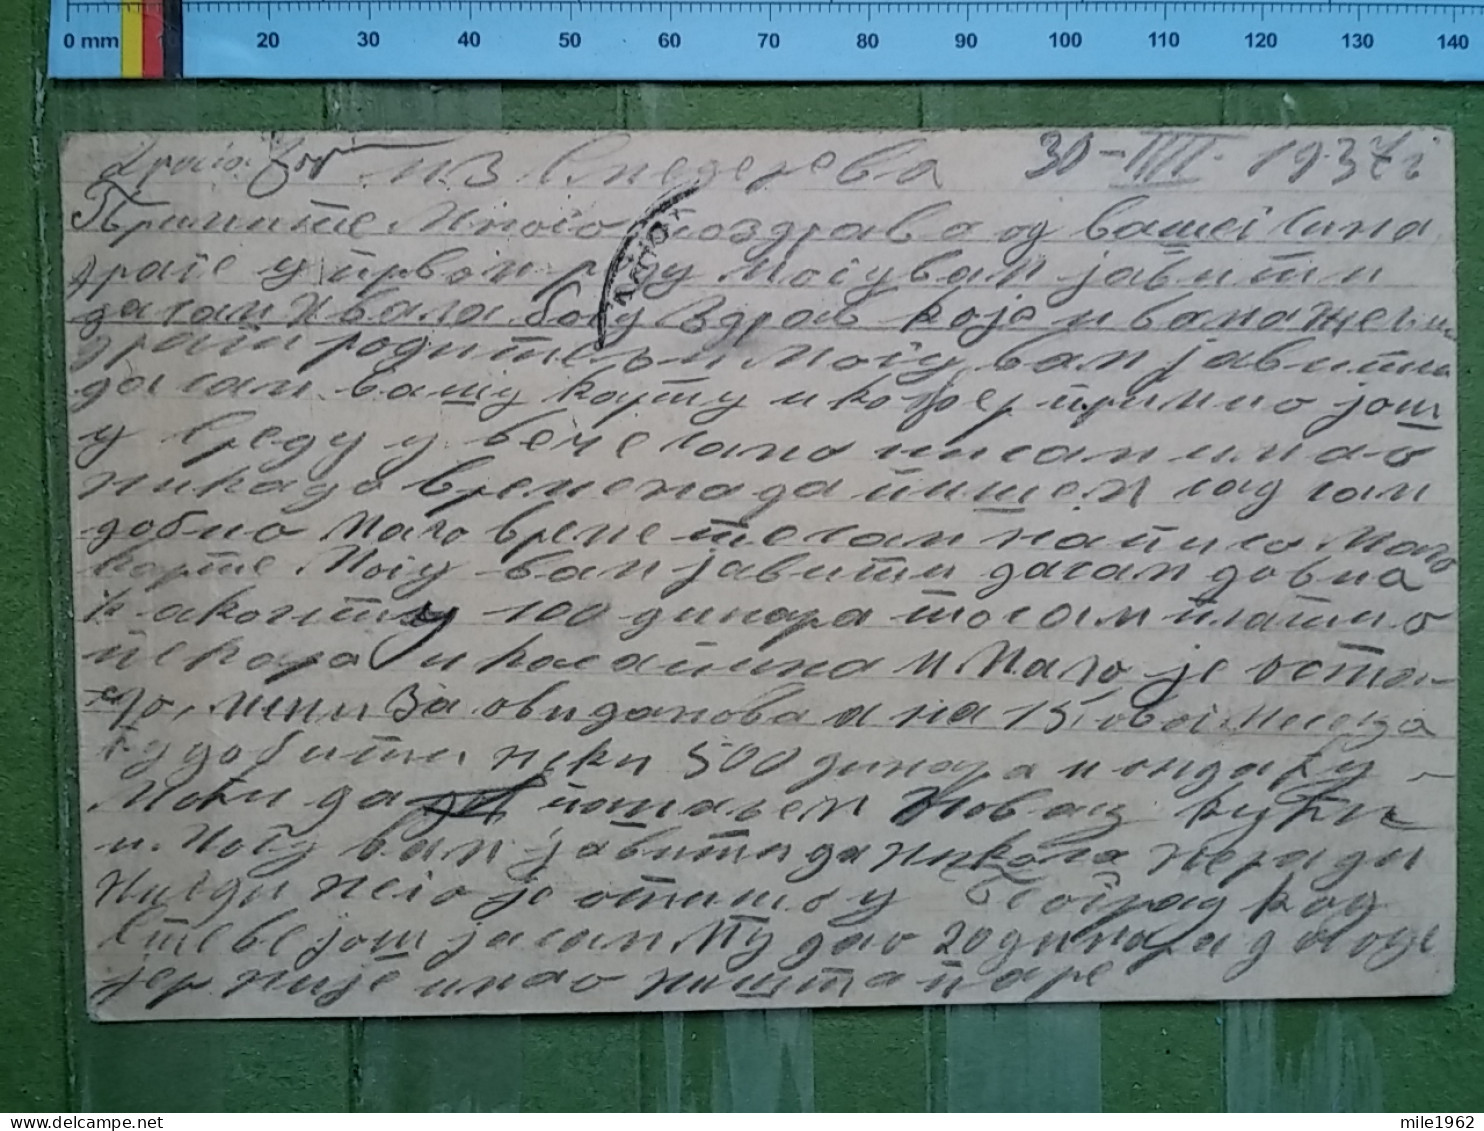 0 mm 20 30 40 50 60 70 80 90 100 110 120 130 140
из Смедерева 30-III. 1937 г
Примите Много поздрава од вашег Сина
драге у првом реду могу вам јавити
да сам Хвала богу Здрав које и вама желим
драги родитељи могу вам јавити
да сам вашу карту и кофер примио још
у Среду у вече само нисам имао
никада времена да пишем сад сам
добио мало време те сам написо мало
карте Могу вам јавити да сам добио
100 динара то сам платио
пекара и и мало је оста-
ло, мени За ова два нова и на 15 овог месеца
ћу добити неки 500 динара и онда ћу
моћи да пошаљем Новац кући
и могу вам јавити да Никола не ради
нигди него је отишо у Београд код
Стеве још ја сам му дао 20 динара да оде
јер није имао ништа паре
mile1962